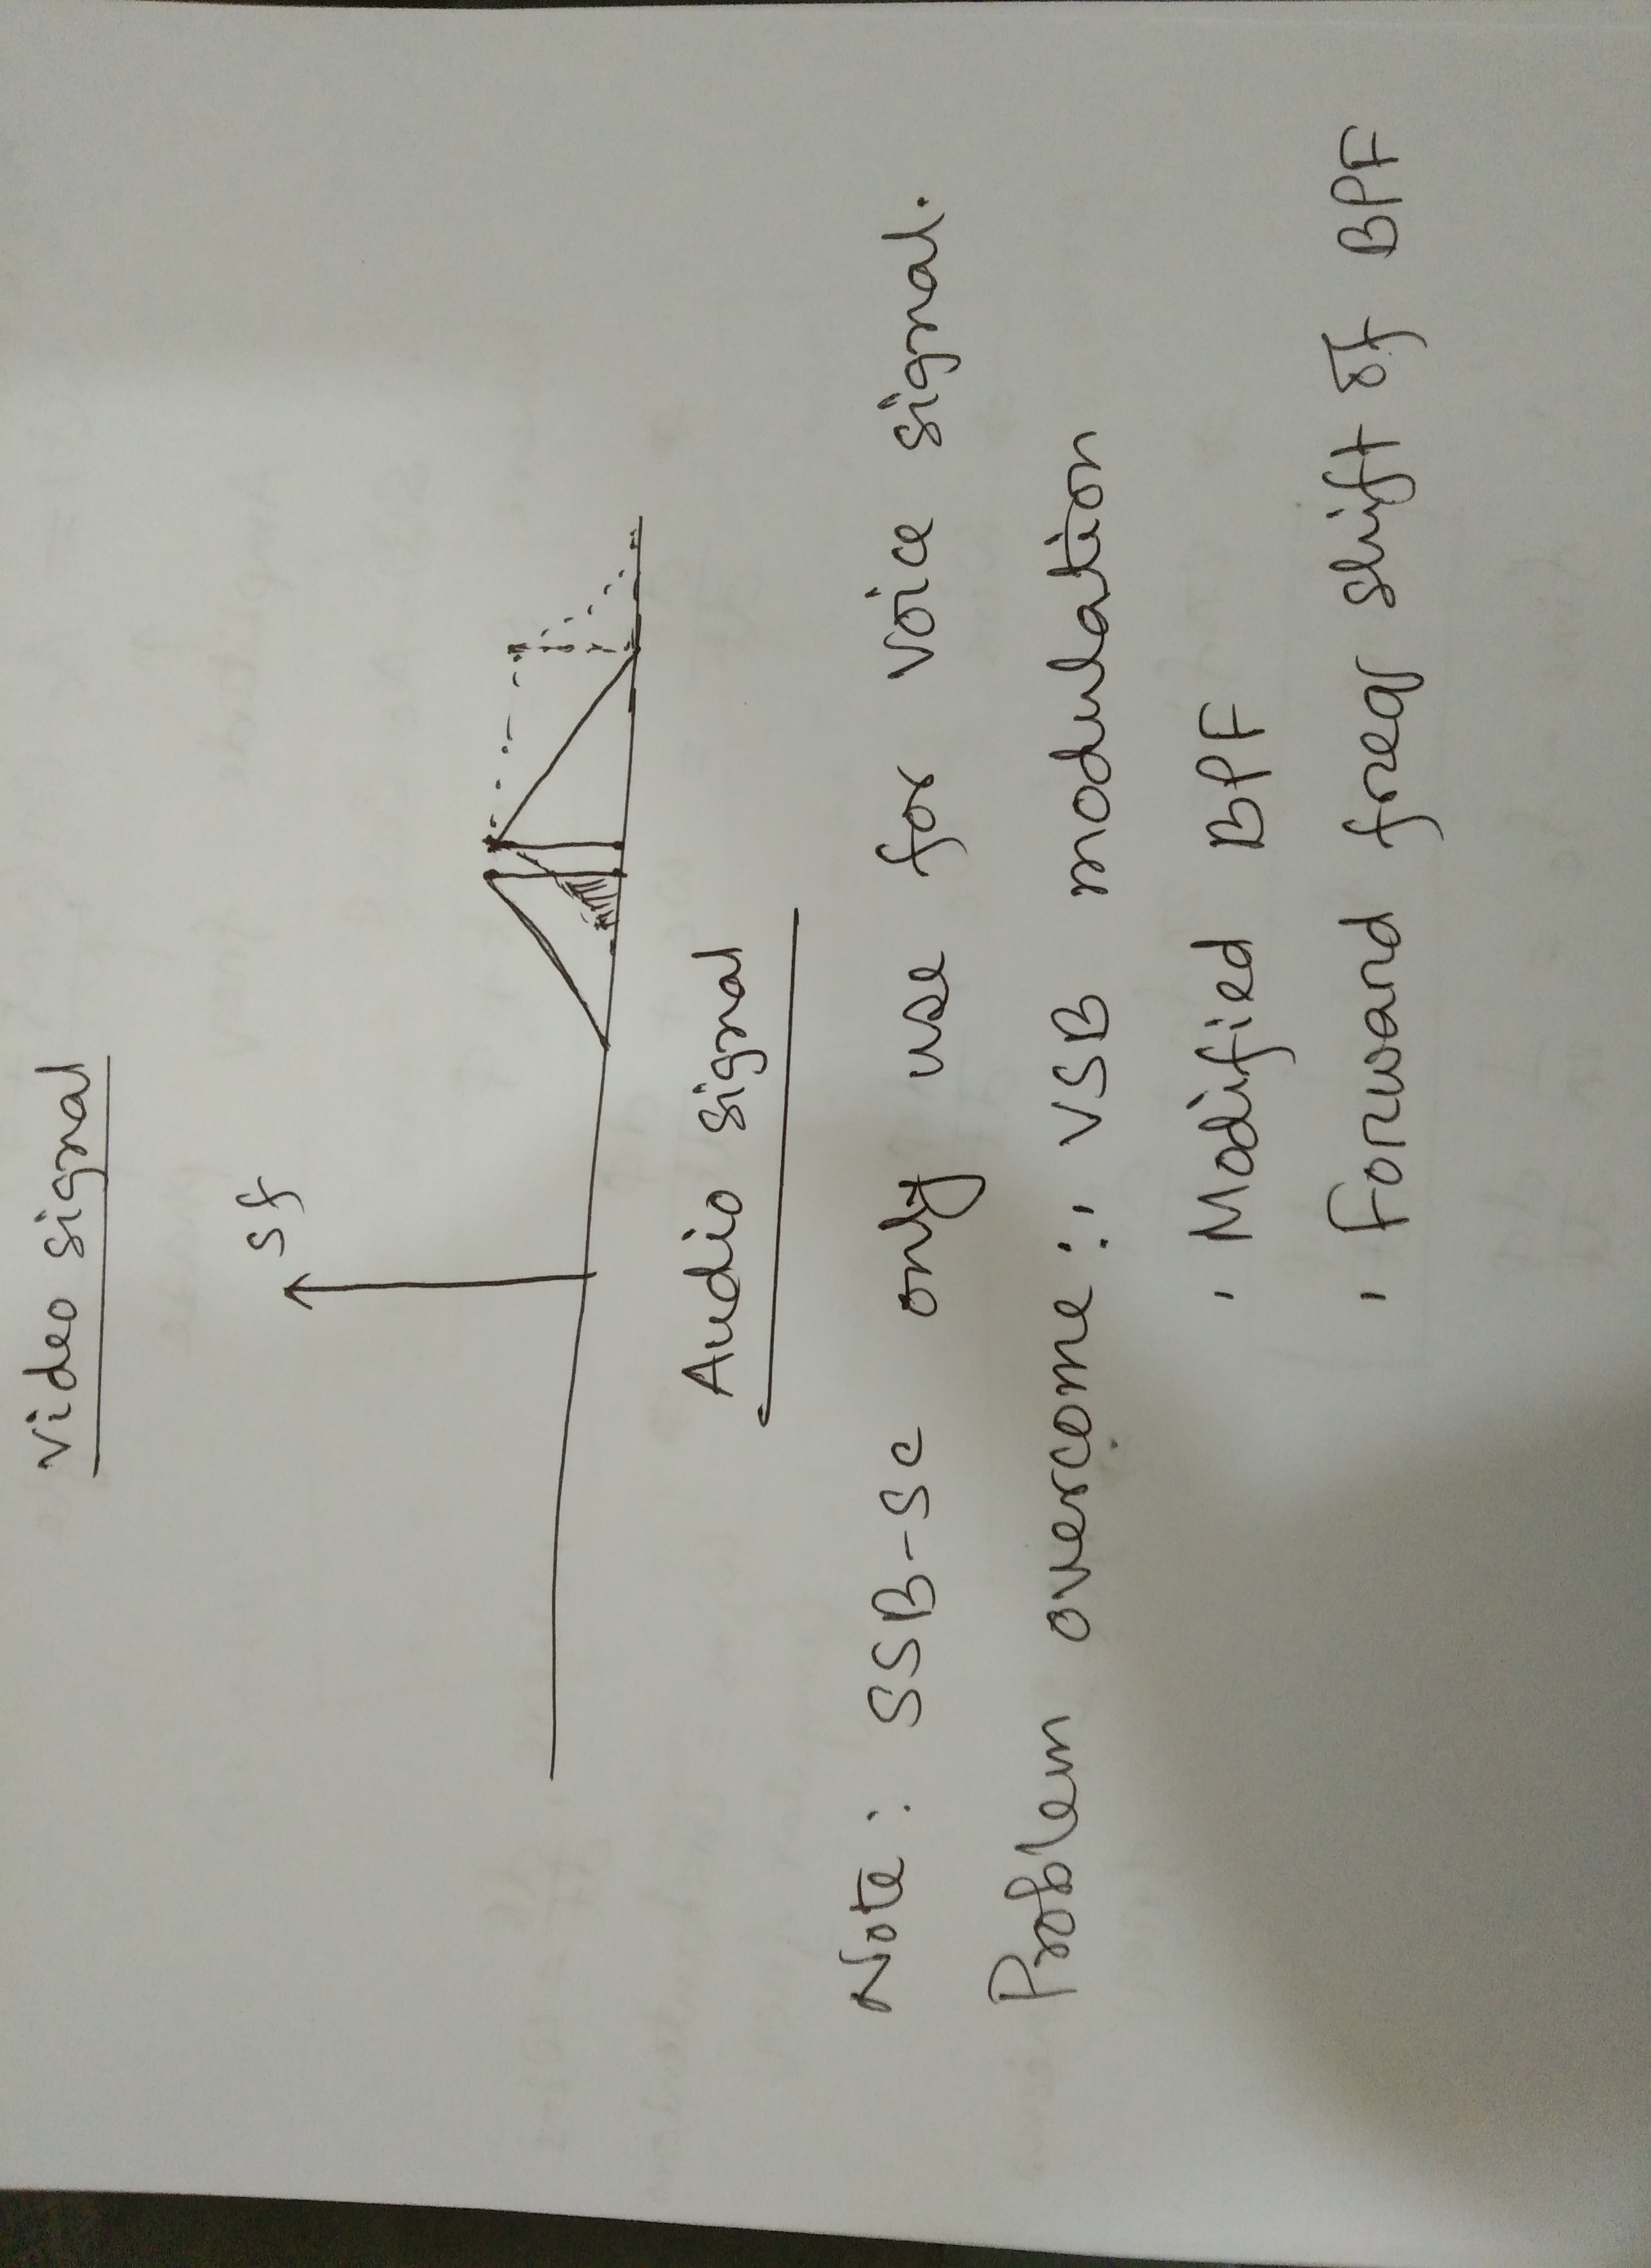 Video signal
Sf
Audio signal
Note: SSB-SC only use for voice signal.
Problem overcome:, VSB modulation
, Modified BPF
, Forward freq shift of BPF